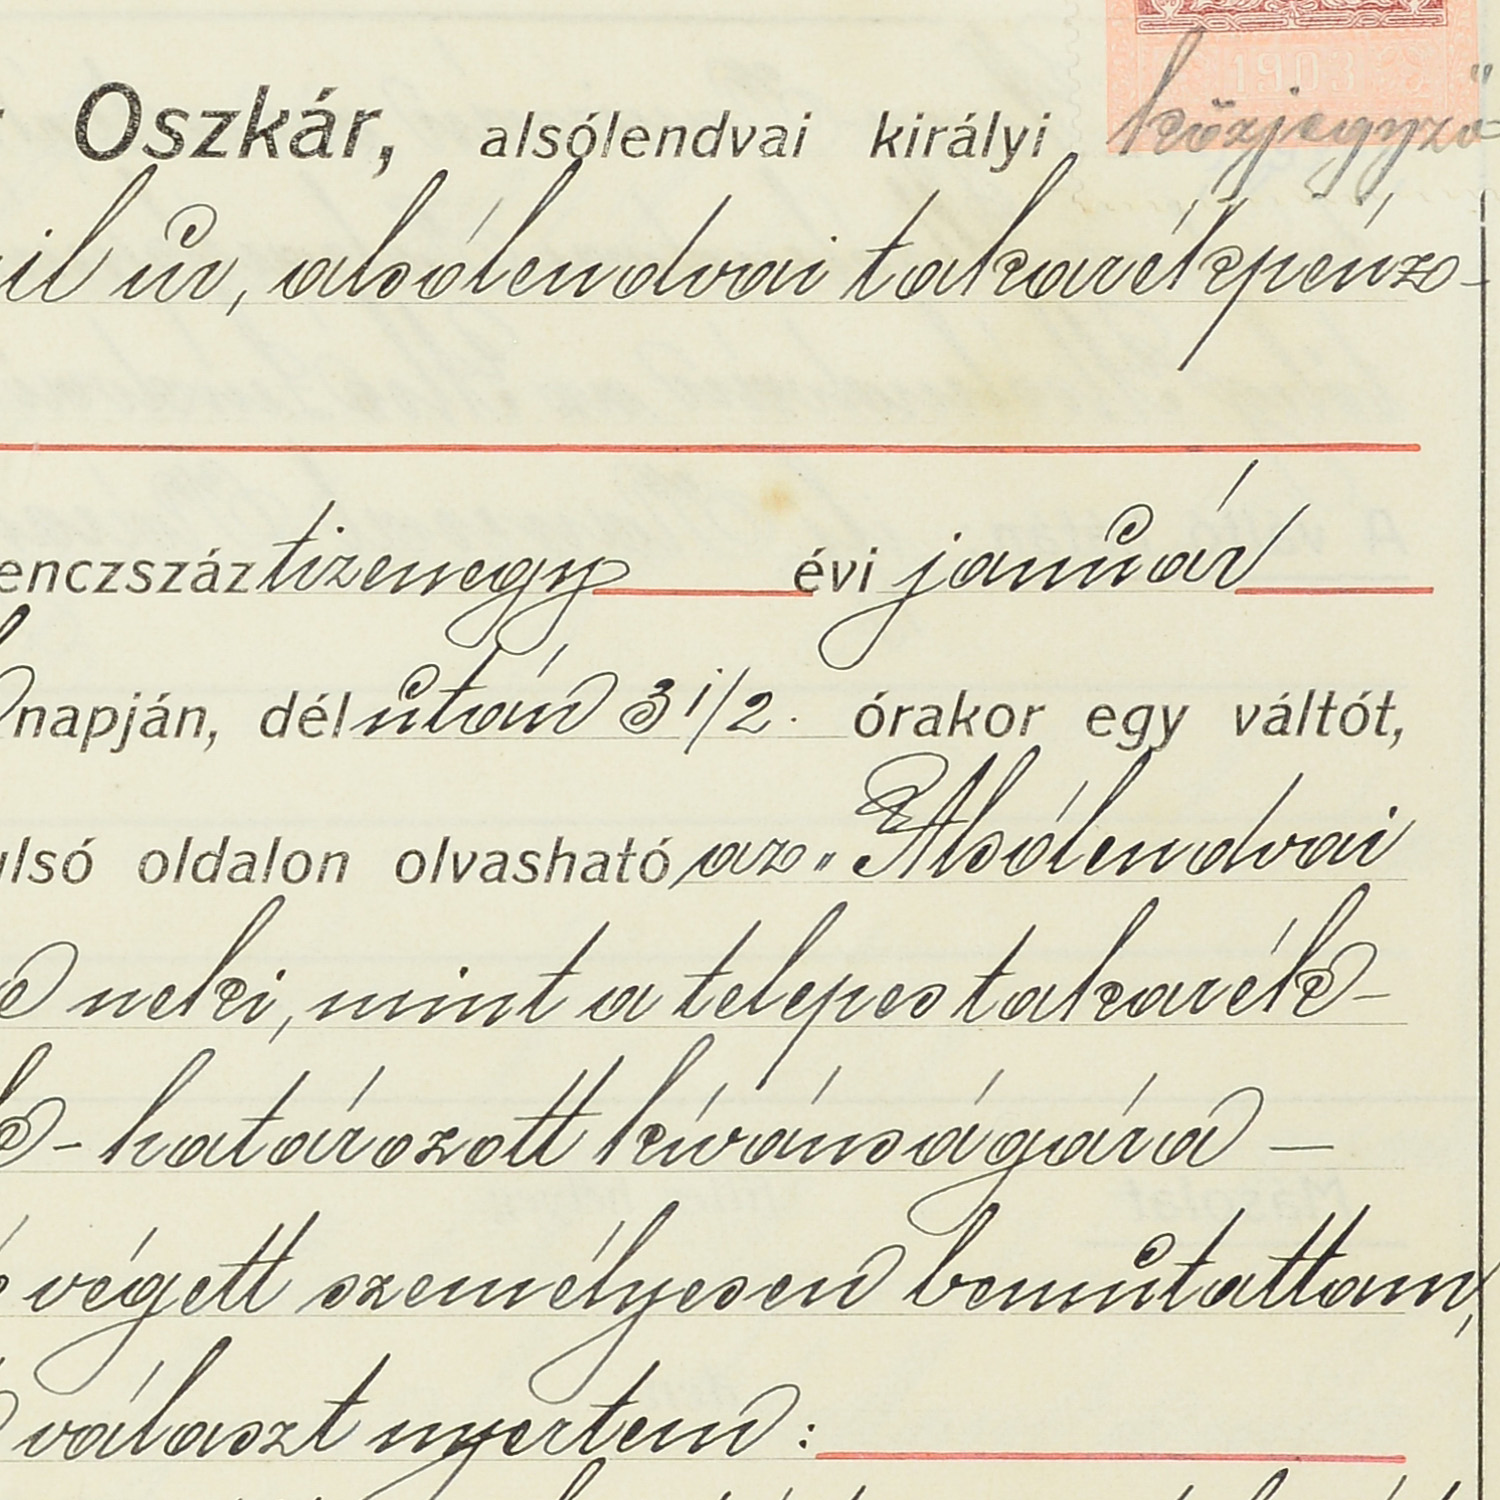 1903
Oszkár, alsólendvai királyi közjegyző
úr, alsólendvai takarékpénz-
enczszáz tizenegy évi január
napján, délután 3 1/2. órakor egy váltót,
ulsó oldalon olvasható az „Alsólendvai
neki, mint a telepes takarék-
- határozott kívánságára —
végett személyesen bemutattam,
választ nyertem: